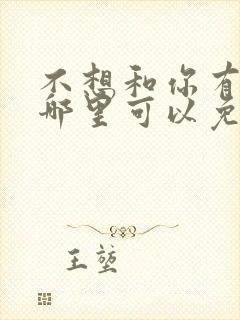 不想和你有
哪里可以免
王堃